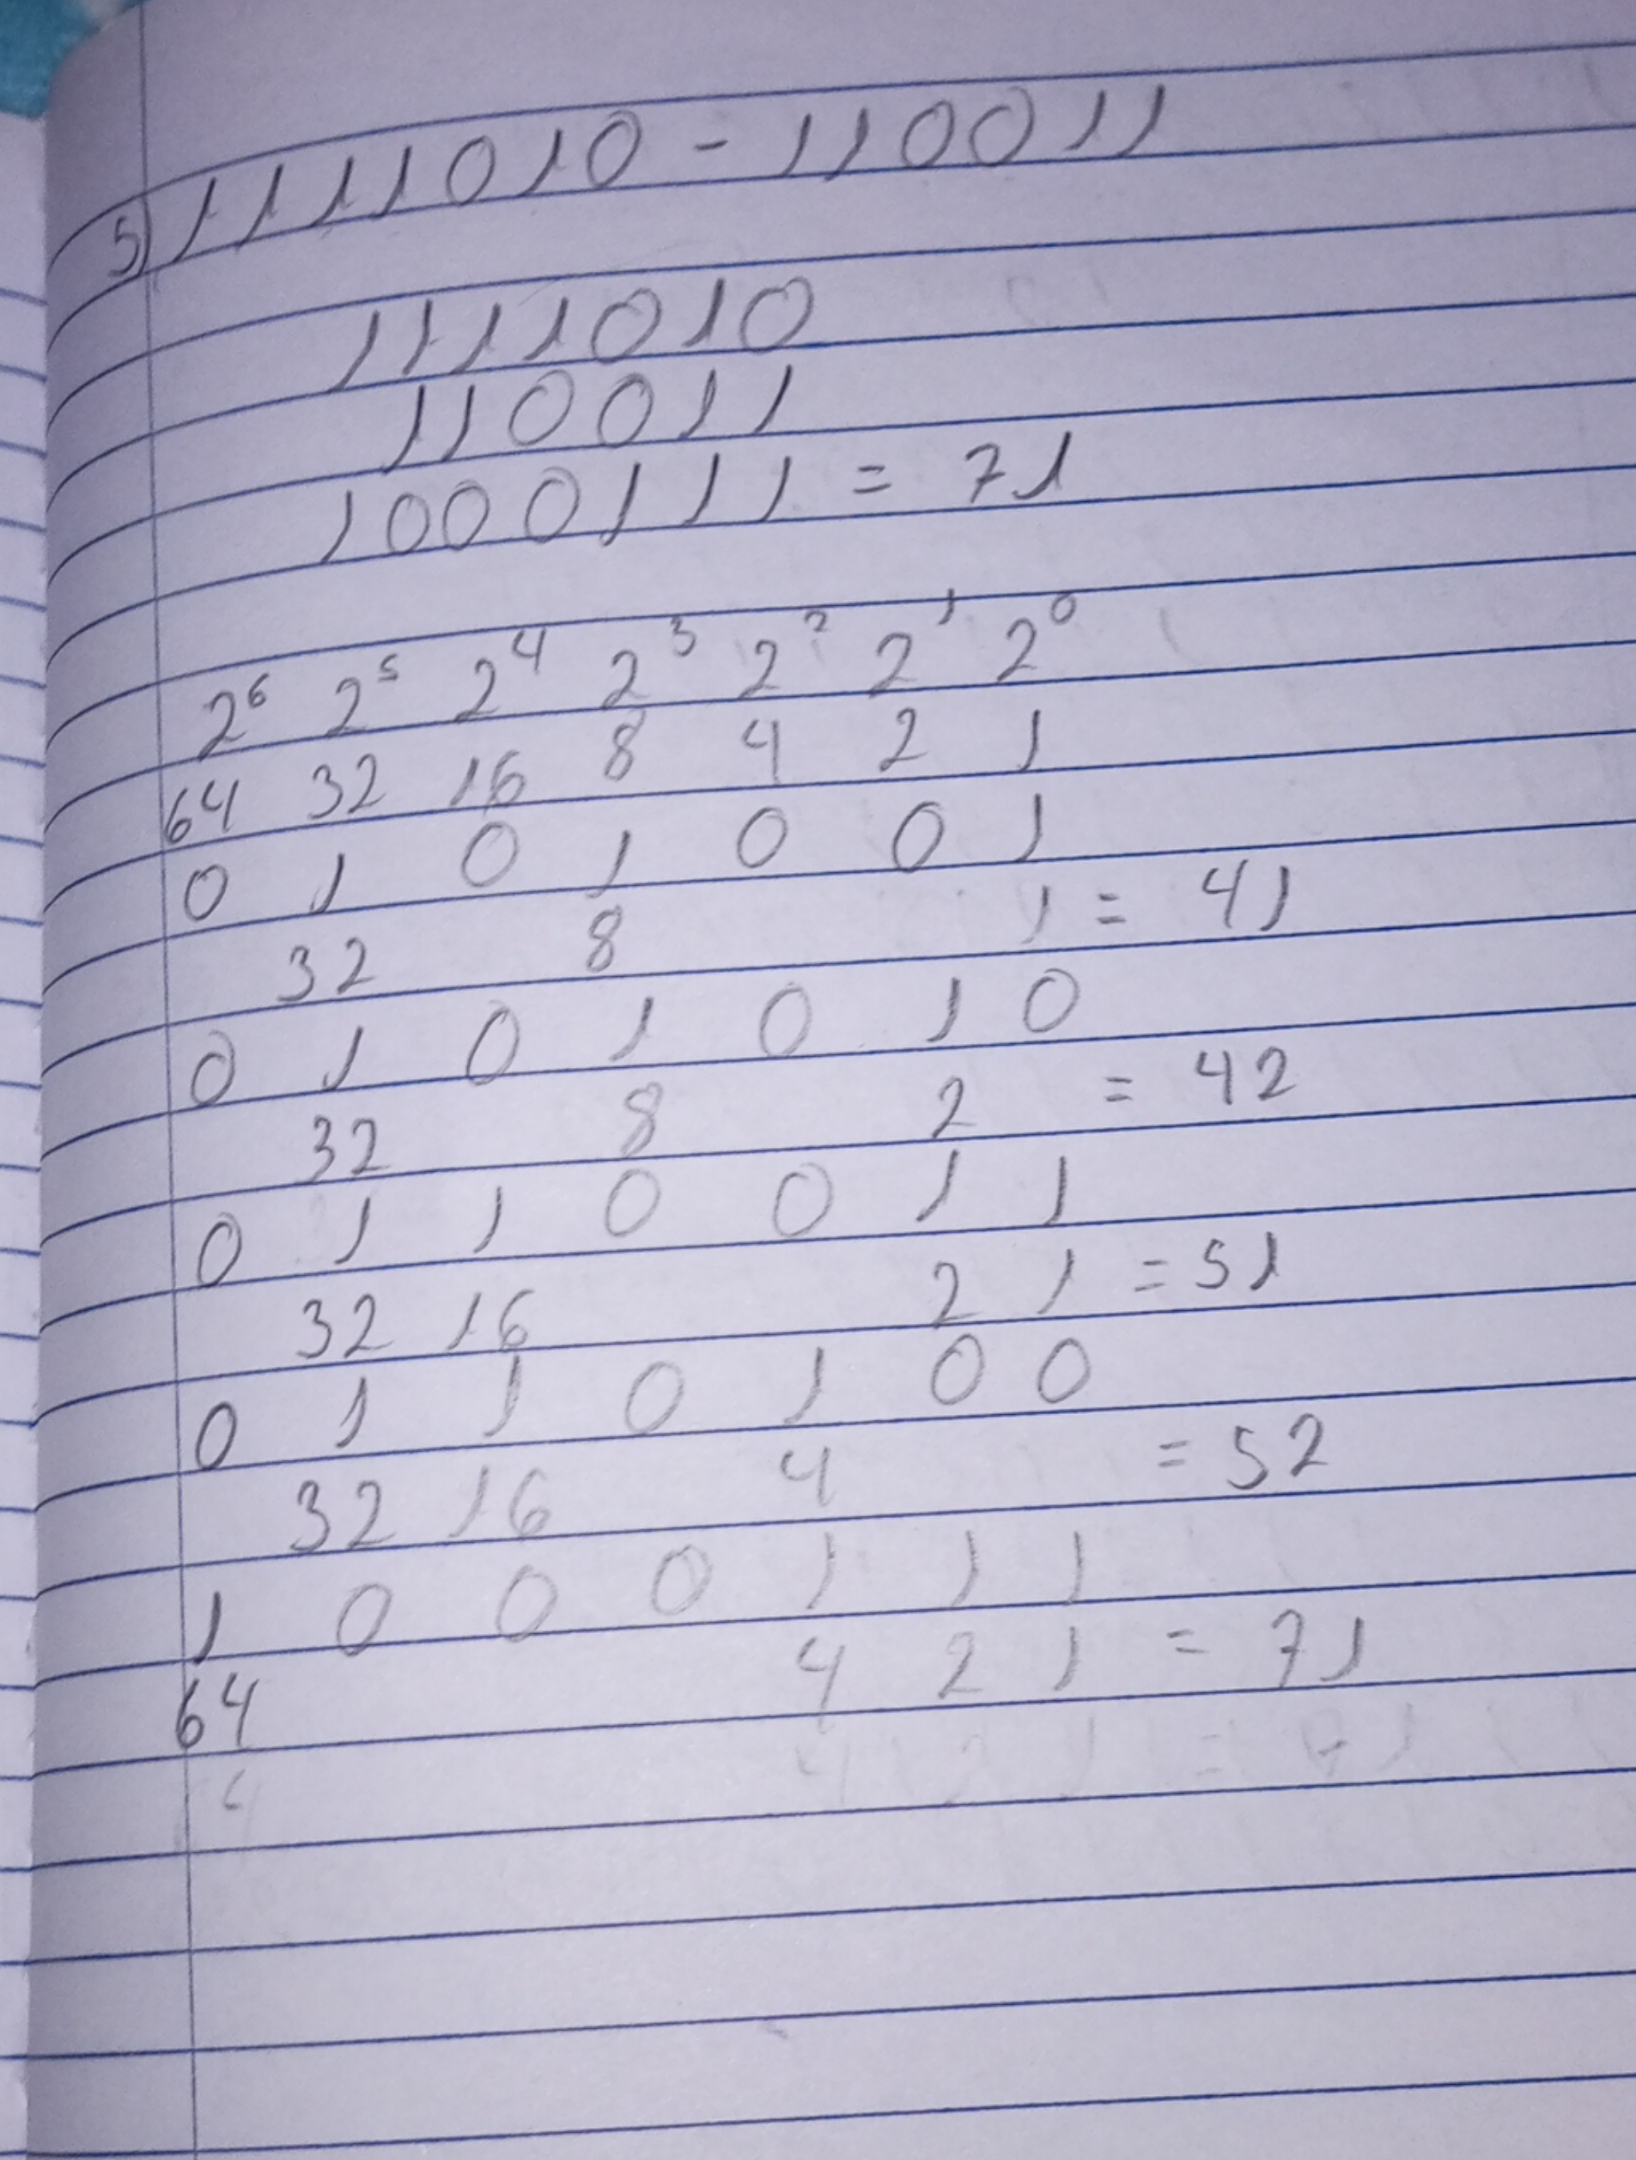 5) 1111010 - 110011
1111010
110011
1000111 = 71
2⁶ 2⁵ 2⁴ 2³ 2² 2¹ 2⁰
64 32 16 8 4 2 1
0 1 0 1 0 0 1
32 8 1 = 41
0 1 0 1 0 1 0
32 8 2 = 42
0 1 1 0 0 1 1
32 16 2 1 = 51
0 1 1 0 1 0 0
32 16 4 = 52
1 0 0 0 1 1 1
64 4 2 1 = 71